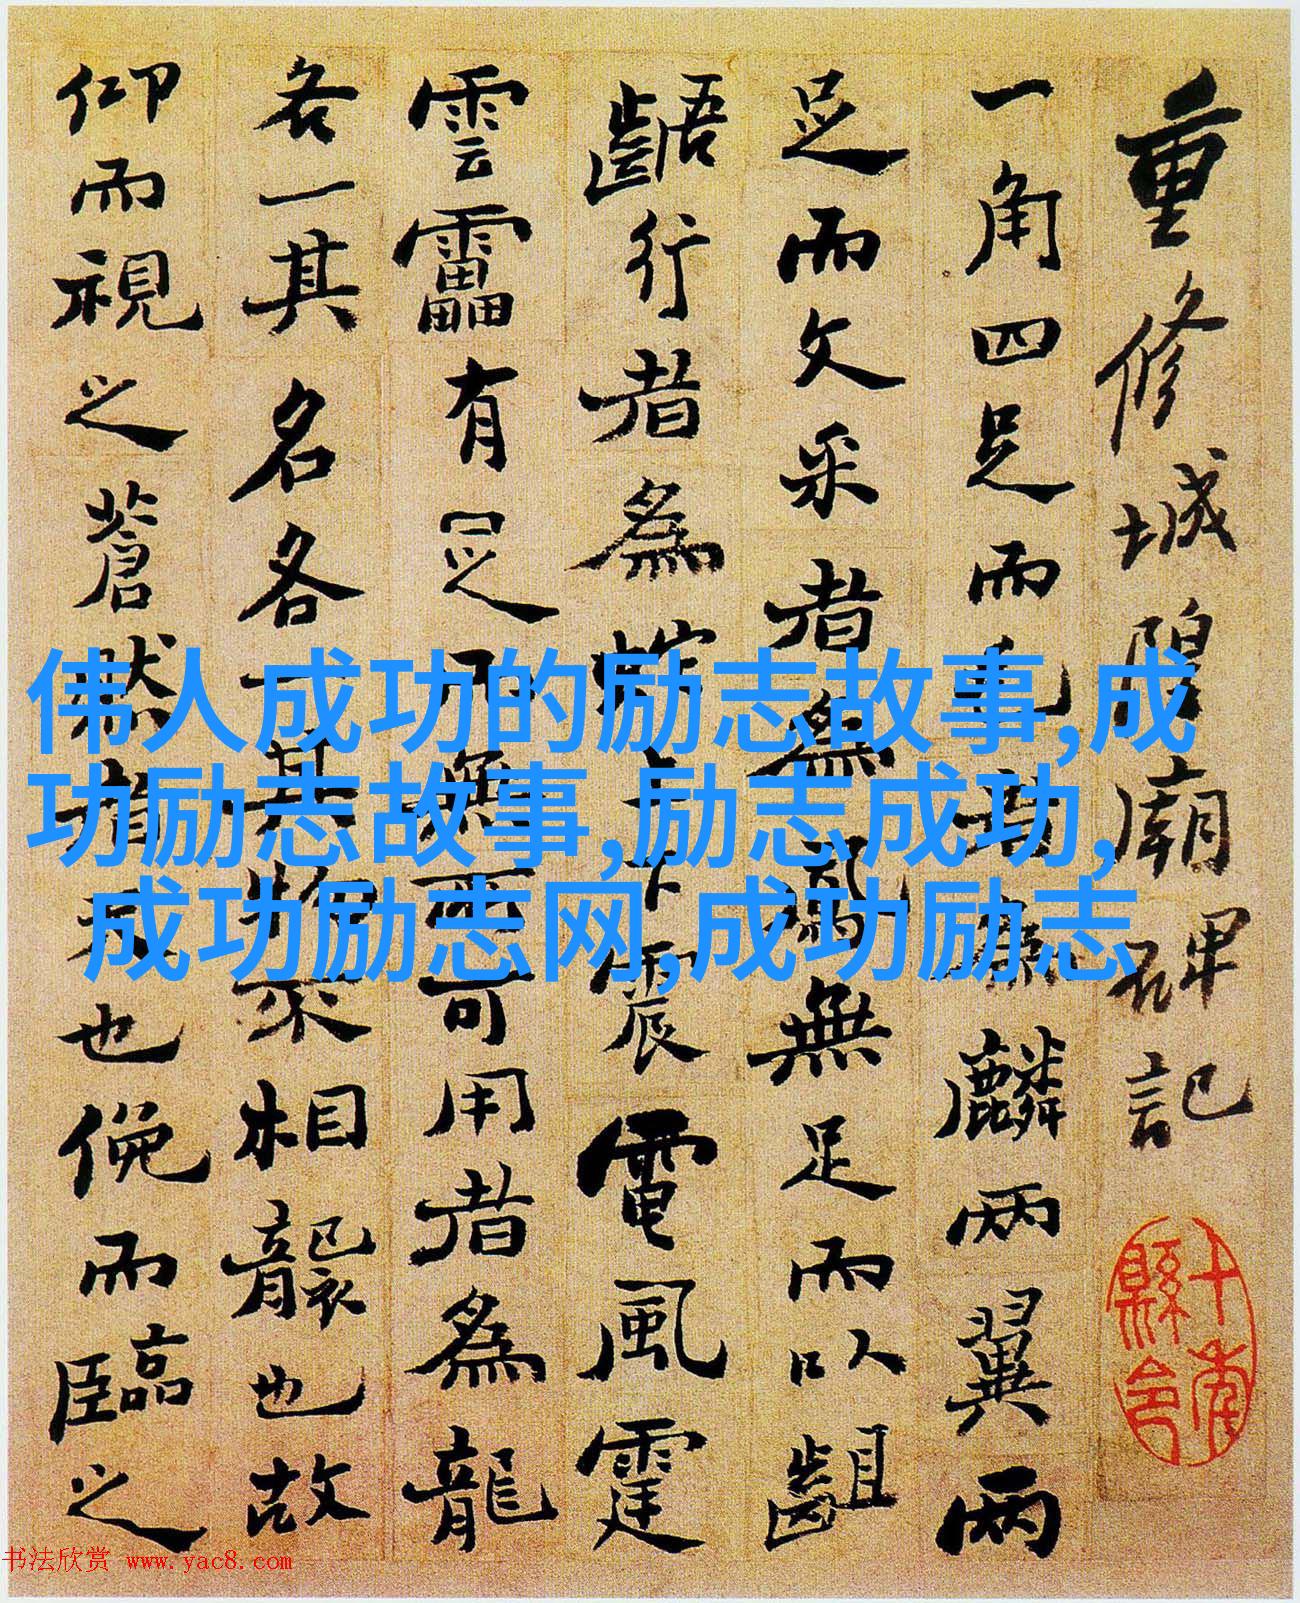 重修城隍廟碑記
一角四足而毛者為麟兩翼兩
足而文采者為鳳無足而以齟
齬行者為蛇上下震電風霆
雲靁有足無可用者為龍
各一其名各一其物不相襲也故
仰而視之蒼然者天也俛而臨之
伟人成功的励志故事,成
功励志故事,励志成功,
成功励志网,成功励志
书法欣赏 www.yac8.com